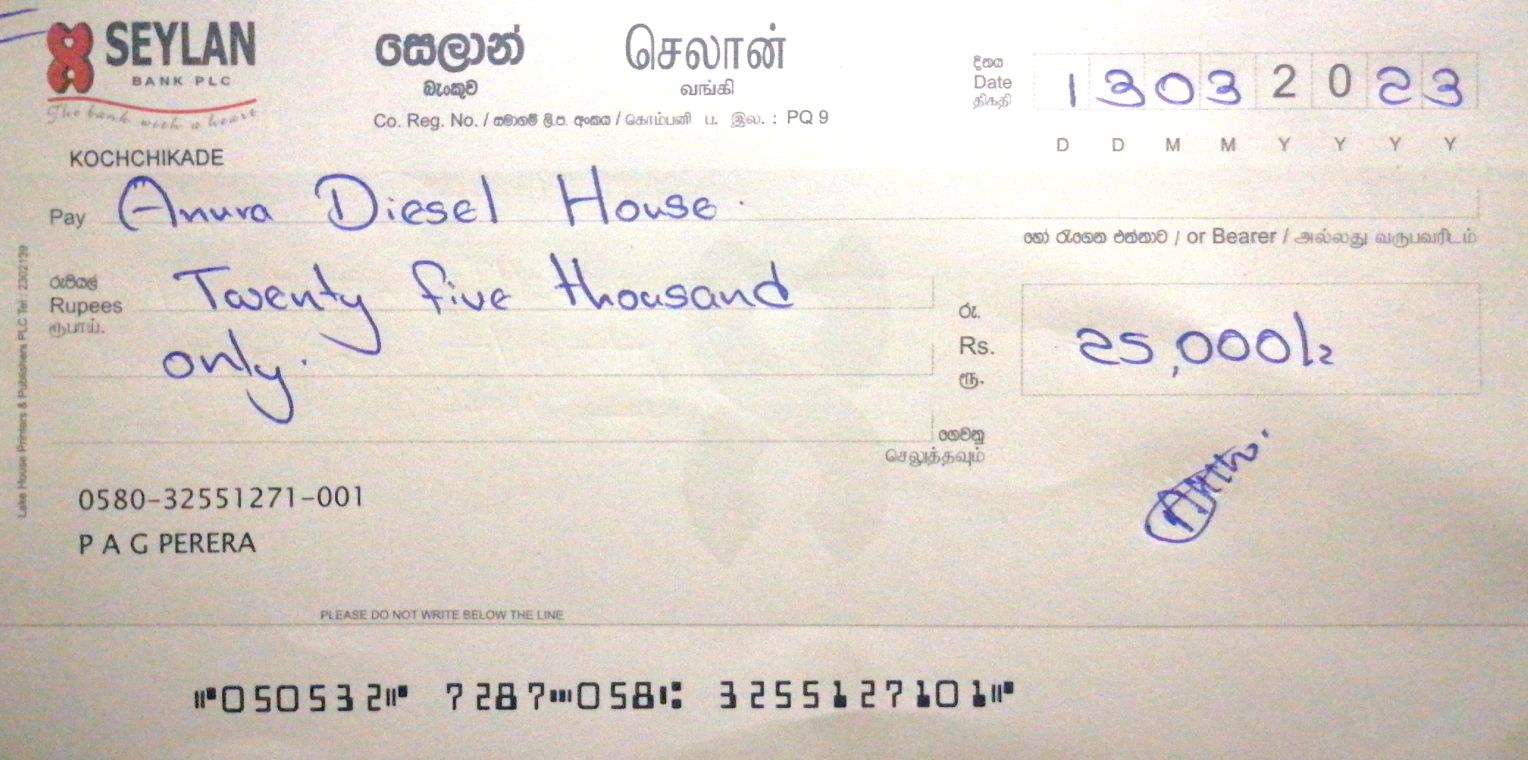 SEYLAN
BANK PLC
The bank with a heart
සෙලාන්
බැංකුව
செலான்
வங்கி
Co. Reg. No. / සමාගම් ලි.ප. අංකය / கொம்பனி ப. இல. : PQ 9
දිනය
Date
திகதி
1 3 0 3 2 0 2 3
D D M M Y Y Y Y
KOCHCHIKADE
Pay Anura Diesel House.
හෝ රැගෙන එන්නාට / or Bearer / அல்லது வருபவரிடம்
රුපියල්
Rupees
ரூபாய்.
Twenty five thousand
only.
රු.
Rs.
ரூ.
25,000/=
ගෙවනු
செலுத்தவும்
0580-32551271-001
P A G PERERA
Lake House Printers & Publishers PLC Tel : 2302139
PLEASE DO NOT WRITE BELOW THE LINE
⑈050532⑈ 7287⑉058⑆ 3255127101⑈